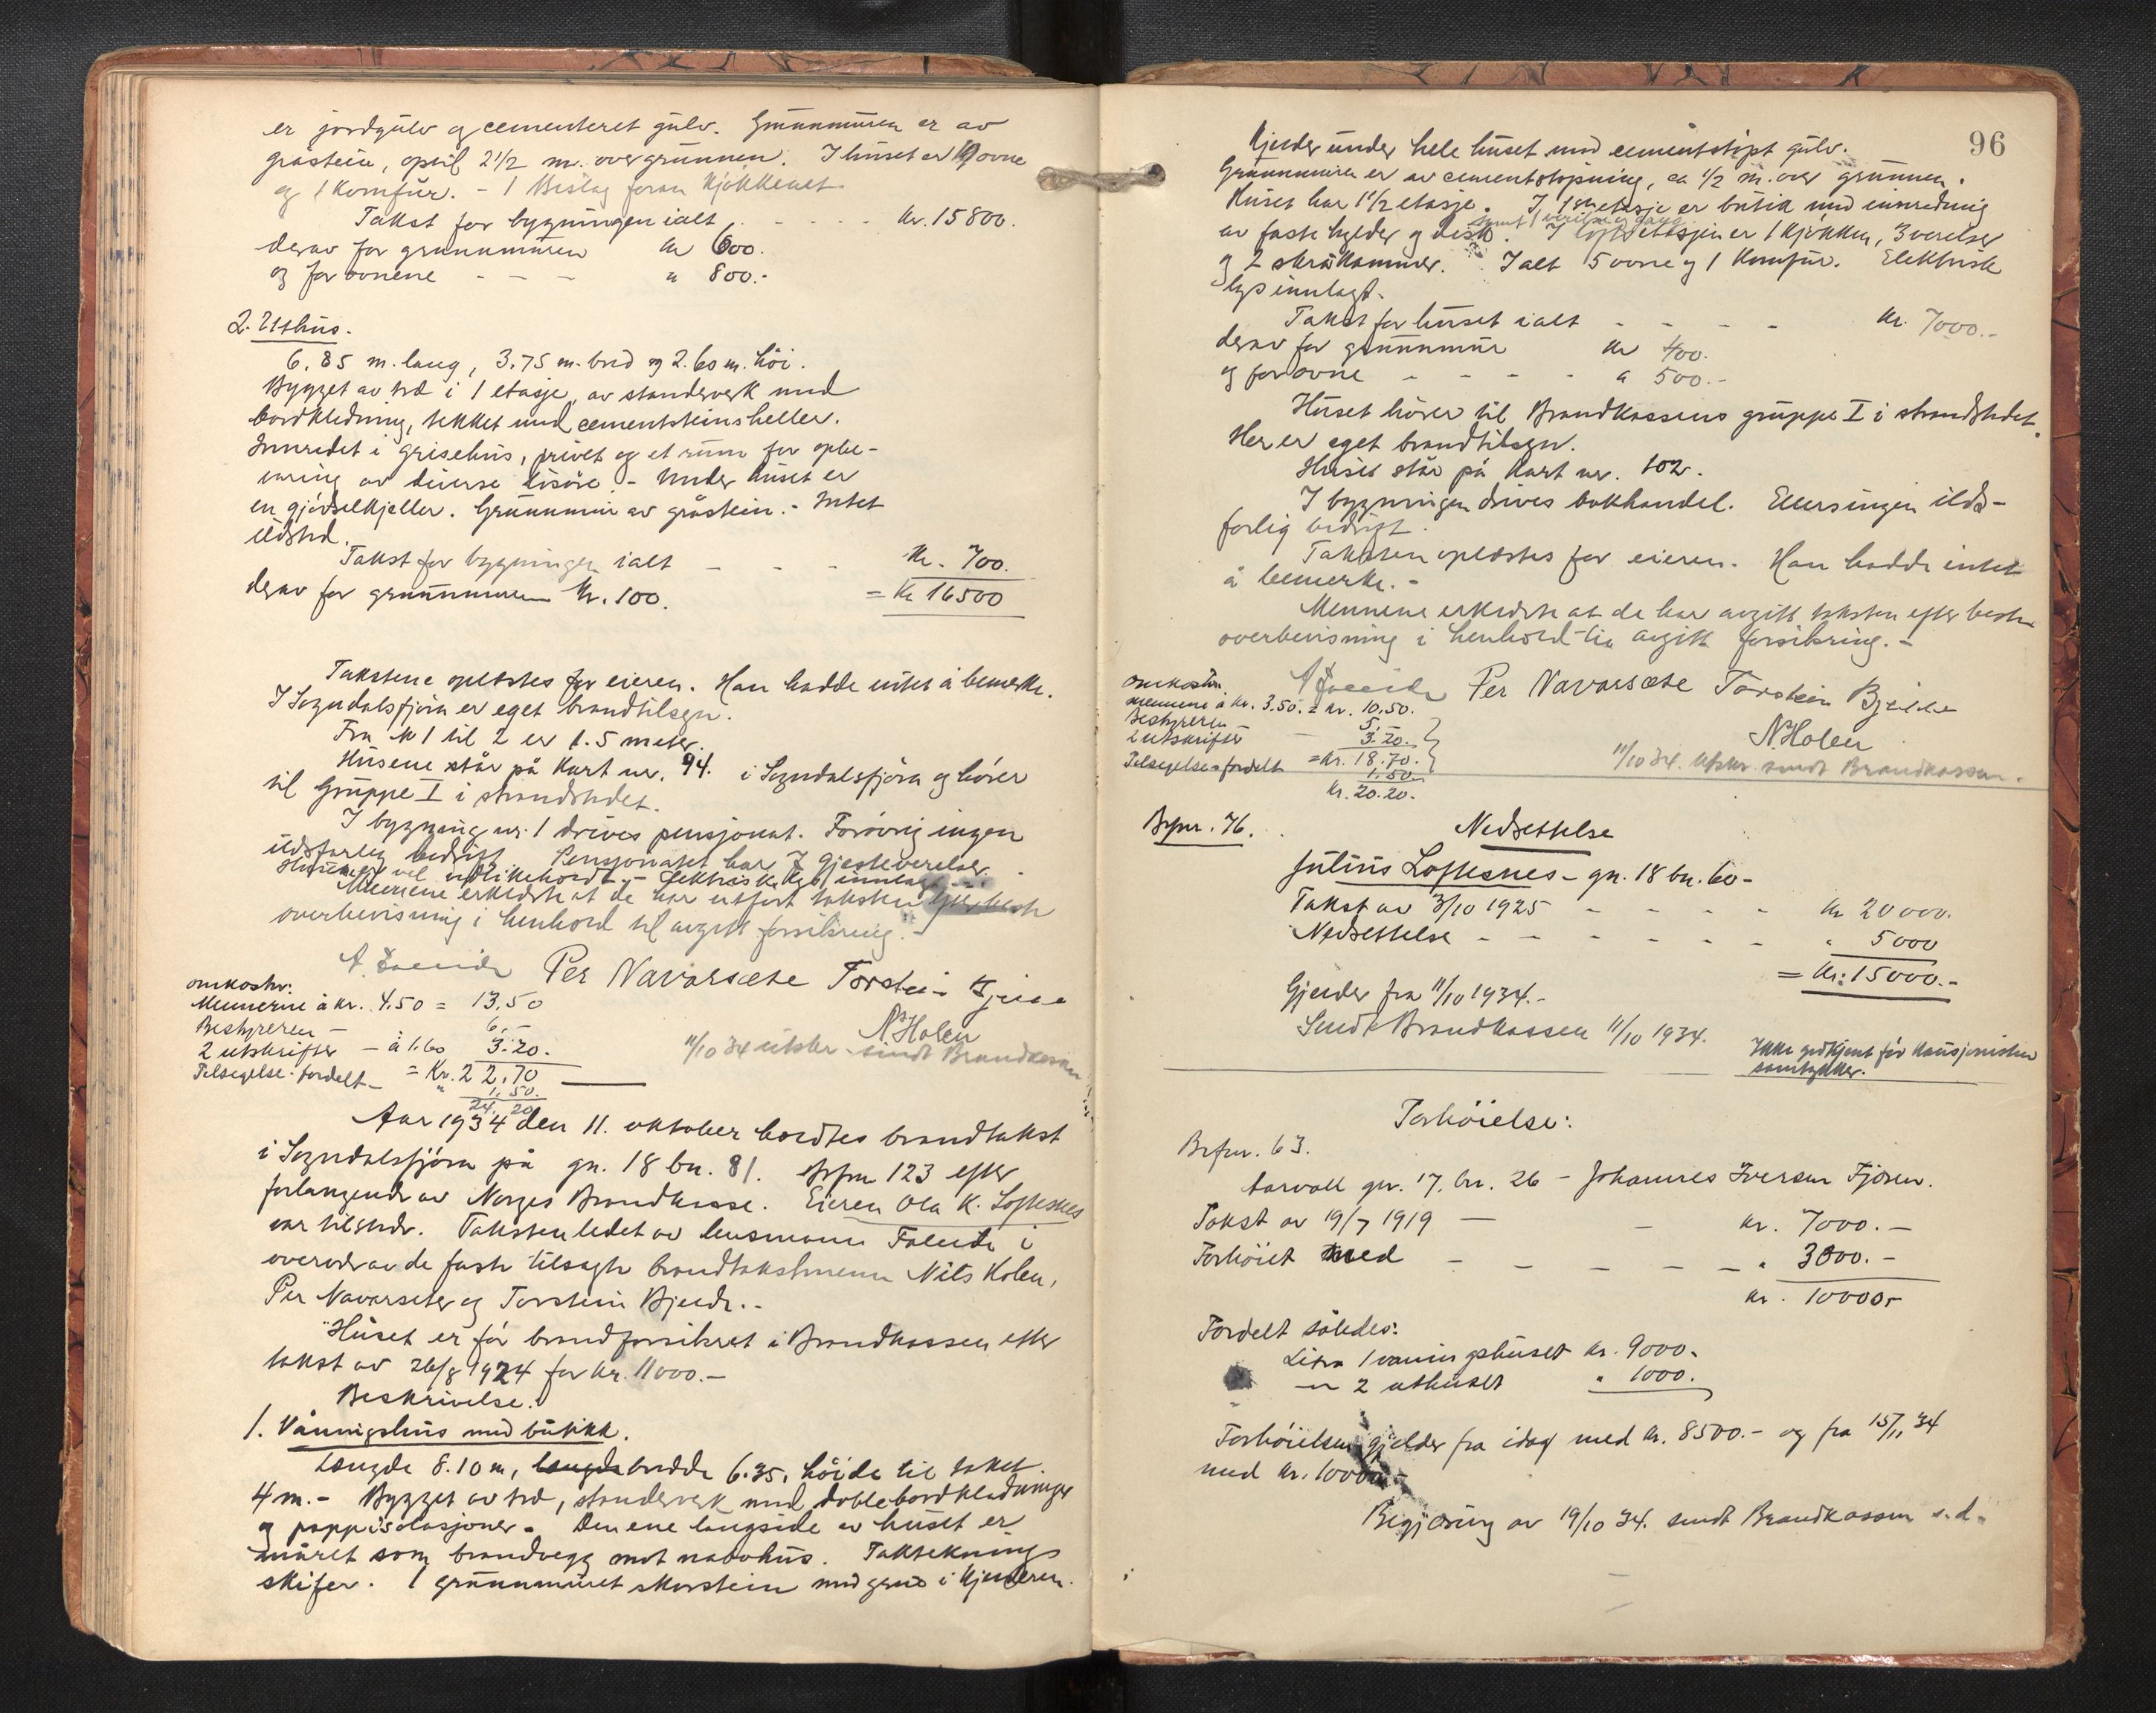 er jordgulv og cementeret gulv. Grunnmuren er av
gråstein, optil 2 1/2 m. over grunnen. I huset er 10 ovne
og 1 komfur. - 1 Beslag foran kjøkkenet.
Takst for bygningen ialt . - - - - kr. 15800.
derav for grunnmuren kr 600.
og for ovnene - - - " 800.-
2. Uthus.
6,85 m. lang, 3.75 m. bred og 2.60 m. höi.
Bygget av tre i 1 etasje, av standerverk med
bordkledning, tekket med cementsteinsheller.
Innredet i grisehus, privet og et rum for opbe-
varing av diverse lösöre. - Under huset er
en gjödselkjeller. Grunnmur av gråstein. - Intet
ildsted.
Takst for bygningen ialt - - - Kr. 700.
derav for grunnmuren kr. 100. = Kr 16500
Takstene oplæstes for eieren. Han hadde intet å bemerke.
I Sogndalsfjöra er eget brandtilsyn.
Fra № 1 til 2 er 1.5 meter.
Husene står på kart nr. 94. i Sogndalsfjöra og hörer
til Gruppe I i strandstedet.
I bygning nr. 1 drives pensjonat. Forövrig ingen
ildsfarlig bedrift. Pensjonatet har 7 gjesteverelser.
Husene er vel vedlikeholdt. - Elektrisk lys innlagt. -
Mennene erklærte at de har utfört taksten efter beste
overbevisning i henhold til avgitt forsikring. -
A. Faleide Per Navarsete Torstein Bjelde
N. Holen
omkostn:
Mennerne à kr. 4.50 = 13,50
Bestyreren - 6,-
2 utskrifter - à 1.60 3.20.
= Kr. 22,70
Tilsigelse fordelt - " 1,50.
24,20
11/10 34 utskr. sendt Brandkassen
Aar 1934 den 11. oktober holdtes brandtakst
i Sogndalsfjöra på gn. 18 bn. 81. Brfnr 123 efter
forlangende av Norges Brandkasse. Eieren Ola K. Loftesnes
var tilstede. Taksten ledet av lensmann Faleide i
overvær av de faste tilsagte brandtakstmenn Nils Holen,
Per Navarseter og Torstein Bjelde. -
Huset er før brandforsikret i Brandkassen efter
takst av 26/8 1924 for kr. 11000.-
Beskrivelse.
1. Våningshus med butikk.
Længde 8.10 m, længde bredde 6.35, höide til taket
4 m. - Bygget av tre, standerverk med doble bordkledninger
og pappisolasjoner. Den ene langside av huset er
muret som brandvegg mot nabohus. Taktekning
skifer. 1 grunnmuret skorstein med grue i kjelleren.
96
Kjelder under hele huset med cementstöpt gulv.
Grunnmuren er av cementstöpning, ca 1/2 m. over grunnen.
Huset har 1 1/2 etasje. I 1ste etasje er butik med innredning
samt 1 verelse og gang
av faste hylder og disk. I loftsetasjen er 1 kjökken, 3 verelser
og 2 skråkammer. Ialt 5 ovne og 1 komfur. Elektrisk
lys innlagt.
Takst for huset ialt - - - - kr. 7000.-
derav for grunnmur kr 400.
og for ovne - - - - " 500.-
Huset hörer til Brandkassens gruppe I i strandstedet.
Her er eget brandtilsyn.
Huset står på kart nr. 102.
I bygningen drives bokhandel. Ellers ingen ilds-
farlig bedrift.
Taksten oplæstes for eieren. Han hadde intet
å bemerke. -
Mennene erklærte at de har avgitt taksten efter beste
overbevisning i henhold til avgitt forsikring. -
A Faleide Per Navarsete Torstein Bjelde
N. Holen
omkostn.
Mennene à kr. 3.50. = kr. 10.50.
Bestyreren - 5,-
2 utskrifter - 3.20.
= kr. 18.70.
Tilsigelse fordelt 1.50
kr. 20.20.
11/10 34. Utskr. sendt Brandkassen.
Brfnr. 76. Nedsettelse
Julius Loftesnes - gn. 18 bn. 60 -
Takst av 3/10 1925 - - - - kr 20000.
Nedsettelse - - - - - - " 5000
= Kr: 15000.-
Gjelder fra 11/10 1934.-
Sendt Brandkassen 11/10 1934.
Ikke godkjent før kausjonisten
samtykker.
Forhöielse:
Brfnr. 63.
Aarvoll gn. 17, bn. 26 - Johannes Iversen Fjören.
Takst av 19/7 1919 - - kr. 7000.-
Forhöiet med - - - - - " 3000.-
kr. 10000,-
Fordelt således:
Litra 1 vaaningshuset kr. 9000.
— " — 2 uthuset " 1000.
Forhöielsen gjelder fra idag med kr. 8500.- og fra 15/11 34
med kr. 10000.-
Begjæring av 19/10 34. sendt Brandkassen s.d.